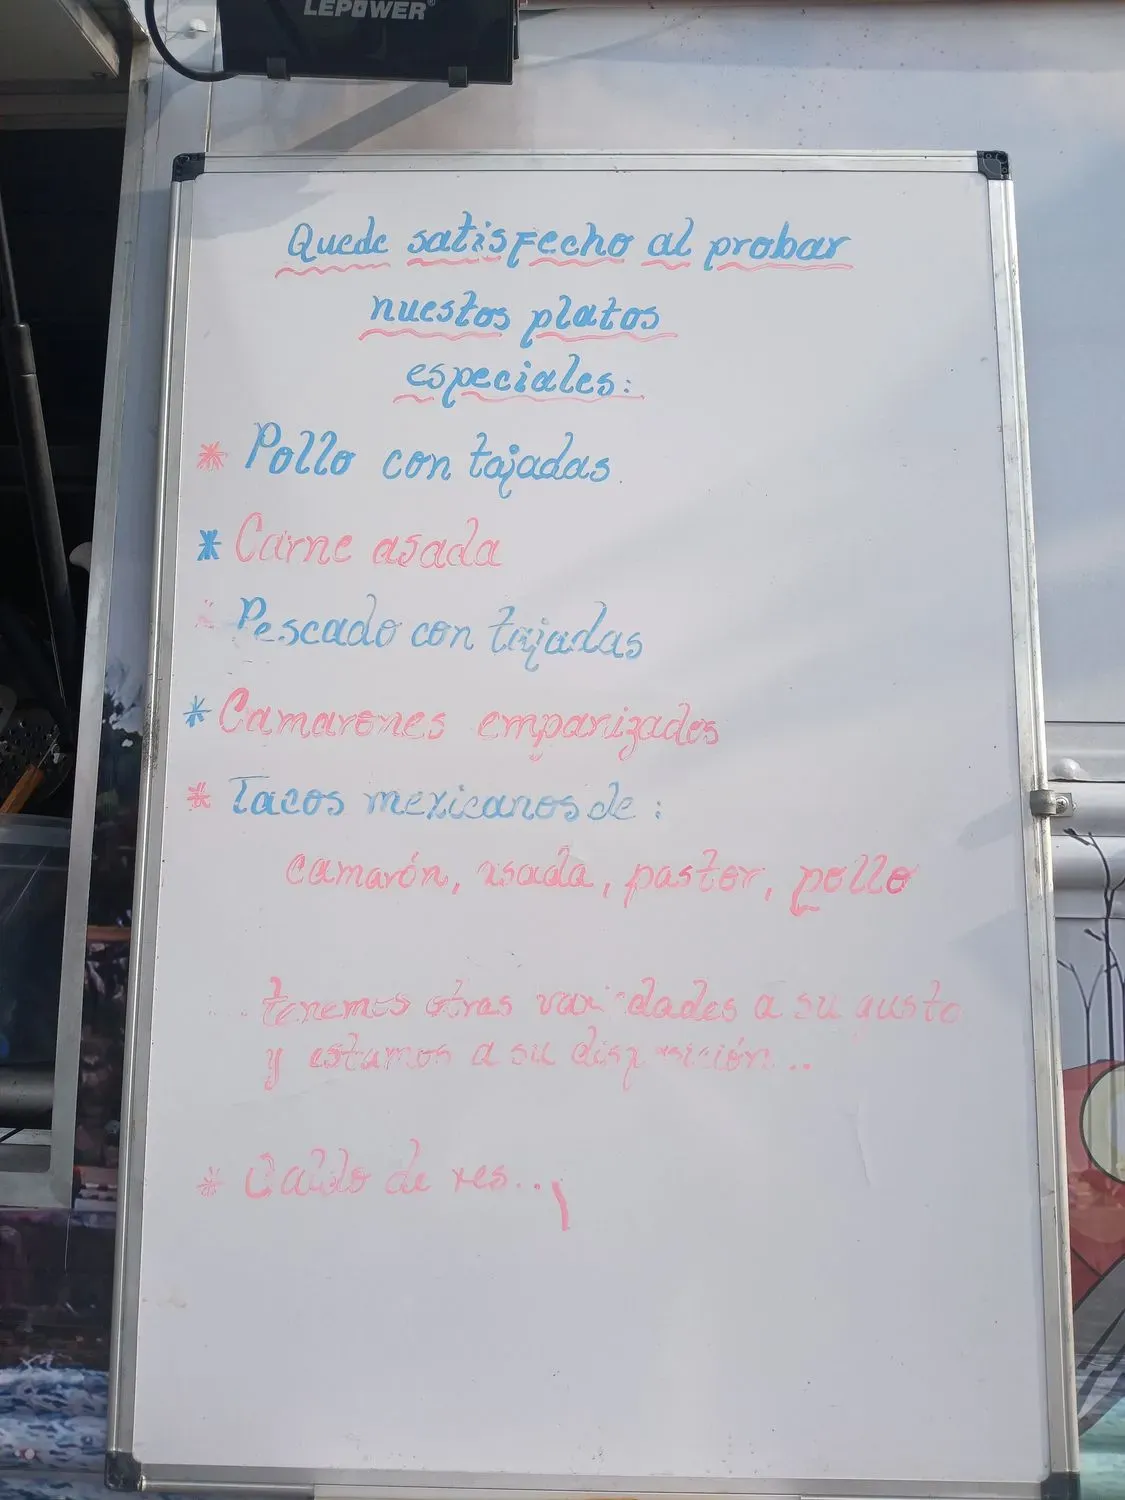 LEPOWER
Quede satisfecho al probar
nuestos platos
especiales:
* Pollo con tajadas
* Carne asada
* Pescado con tajadas
* Camarones empanizados
* Tacos mexicanos de :
camarón, asada, pastor, pollo
tenemos otras variedades a su gusto
y estamos a su disposición..
* Caldo de res...